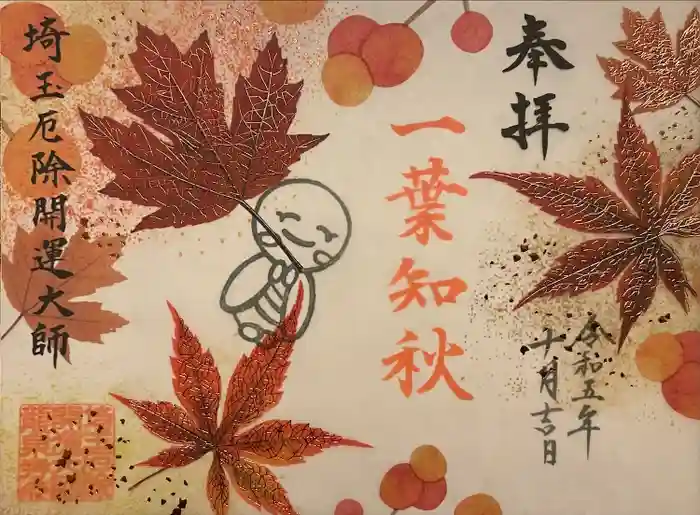 奉拝
一葉知秋
令和五年
十月吉日
埼玉厄除開運大師